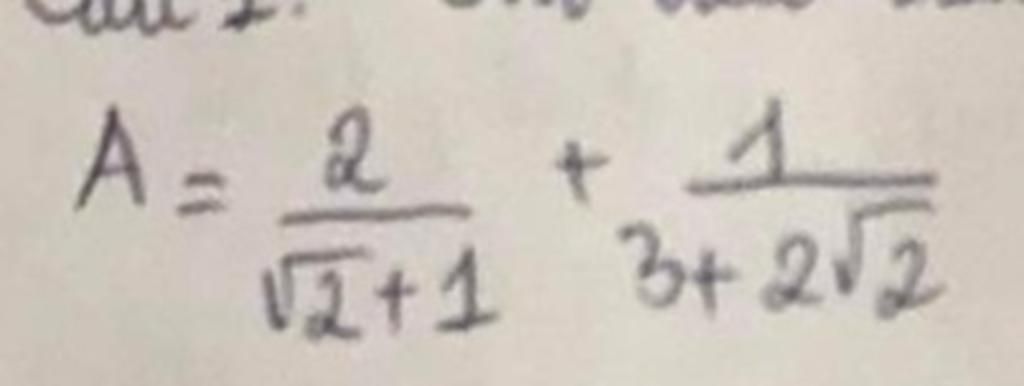 A = \frac{2}{\sqrt{2}+1} + \frac{1}{3+2\sqrt{2}}